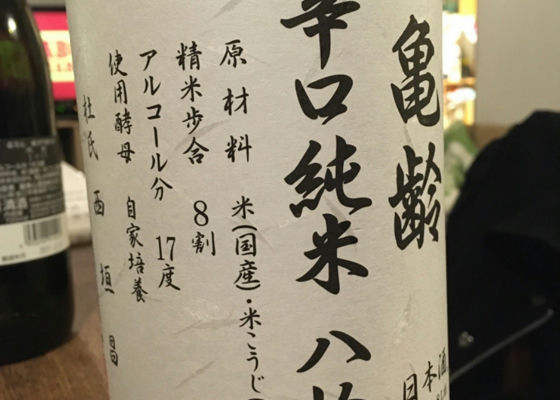 亀齢
日本酒
辛口純米 八
原材料 米(国産)・米こうじ(
精米歩合 8割
アルコール分 17度
使用酵母 自家培養
杜氏 西垣昌